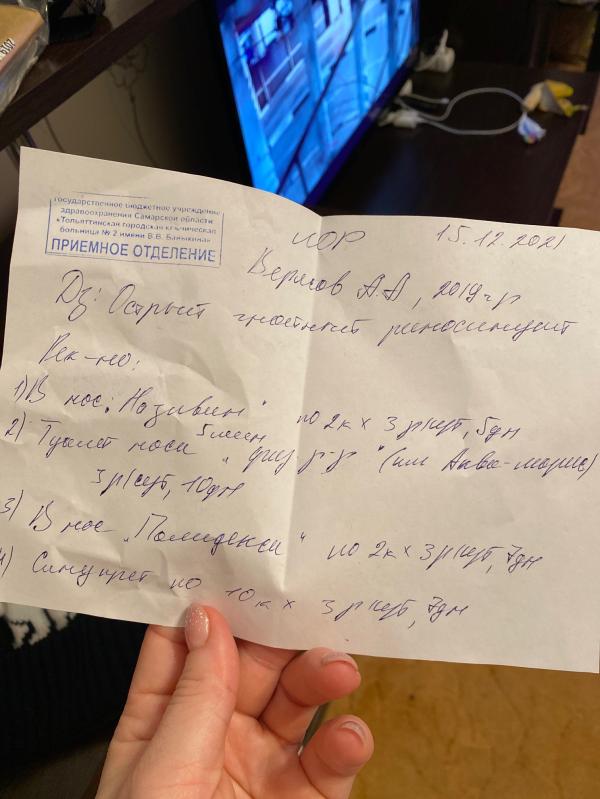 государственное бюджетное учреждение
здравоохранения Самарской области
«Тольяттинская городская клиническая
больница № 2 имени В.В. Баныкина»
ПРИЕМНОЕ ОТДЕЛЕНИЕ
ЛОР 15.12.2021
А.А, 2019 г.р
Dz: Острый гнойный риносинусит
Рек-но:
1) В нос: "Називин" по 2к х 3 р/сут, 5дн
5 мин
2) Туалет носа "физ. р-р" (или Аква-марис)
3 р/сут, 10дн
3) В нос "Полидекса" по 2к х 3 р/сут, 7дн
4) Синупрет по 10к х 3 р/сут, 7дн